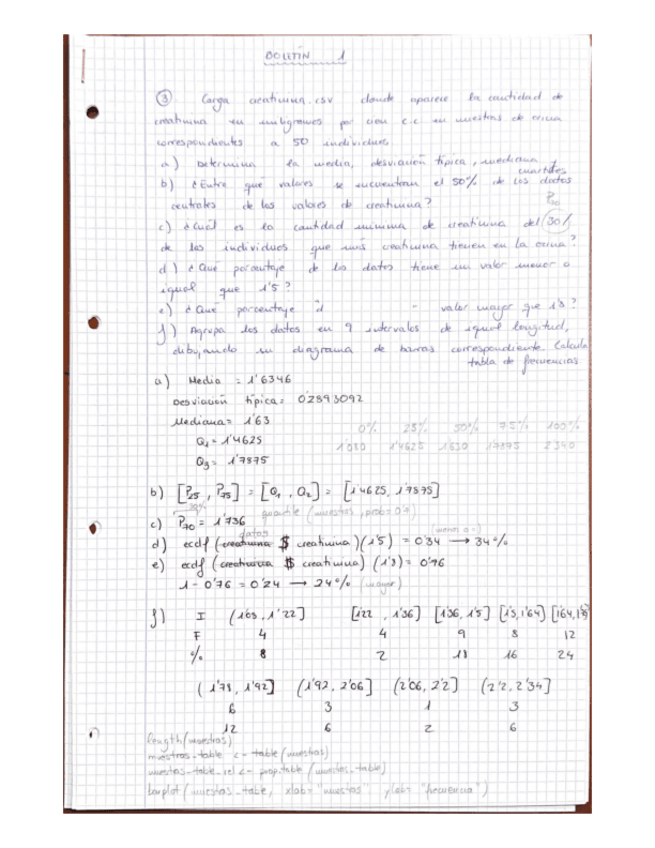 BOLETÍN 1
③ Carga creatinina.csv donde aparece la cantidad de
creatinina en miligramos por cien c.c en muestras de orina
correspondientes a 50 individuos
a) Determina la media, desviación típica, mediana y
cuartiles
b) ¿Entre qué valores se encuentran el 50% de los datos
centrales de los valores de creatinina?
P70
c) ¿Cuál es la cantidad mínima de creatinina del 30%
de los individuos que más creatinina tienen en la orina?
d) ¿Qué porcentaje de los datos tiene un valor menor o
igual que 1'5?
e) ¿Qué porcentaje " valor mayor que 1'8?
f) Agrupa los datos en 9 intervalos de igual longitud,
dibujando su diagrama de barras correspondiente. Calcula
tabla de frecuencias.
a) Media = 1'6346
Desviación típica = 0'2893092
Mediana = 1'63
0% 25% 50% 75% 100%
Q1 = 1'4625
1'080 1'4625 1'630 1'7875 2'340
Q3 = 1'7875
b) [P25, P75] = [Q1, Q2] = [1'4625, 1'7875]
c) P70 = 1'736 quantile (muestras, prob = 0'7)
datos menor o =)
d) ecdf (creatinina $ creatinina)(1'5) = 0'34 → 34%
e) ecdf (creatinina $ creatinina) (1'8) = 0'76
1 - 0'76 = 0'24 → 24% (mayor)
f) I (1'08, 1'22] [1'22, 1'36] [1'36, 1'5] [1'5, 1'64] [1'64, 1'78]
F 4 4 9 8 12
% 8 2 18 16 24
(1'78, 1'92] (1'92, 2'06] (2'06, 2'2] (2'2, 2'34]
6 3 1 3
12 6 2 6
length(muestras)
muestras_table <- table (muestras)
muestras_table_rel <- prop.table (muestras_table)
barplot (muestras_table, xlab= "muestras" ylab= "frecuencia")